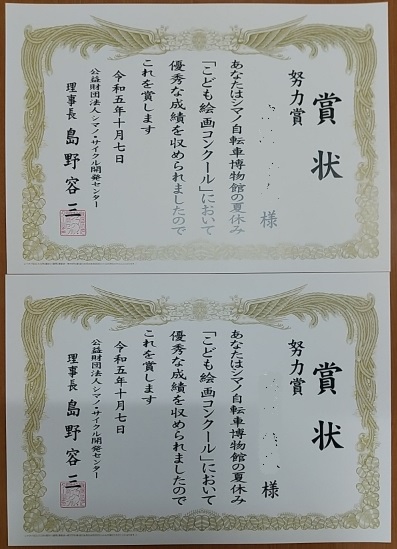 賞状
努力賞
様
あなたはシマノ自転車博物館の夏休み
「こども絵画コンクール」において
優秀な成績を収められましたので
これを賞します
令和五年十月七日
公益財団法人シマノ・サイクル開発センター
理事長 島野容三
賞状
努力賞
様
あなたはシマノ自転車博物館の夏休み
「こども絵画コンクール」において
優秀な成績を収められましたので
これを賞します
令和五年十月七日
公益財団法人シマノ・サイクル開発センター
理事長 島野容三